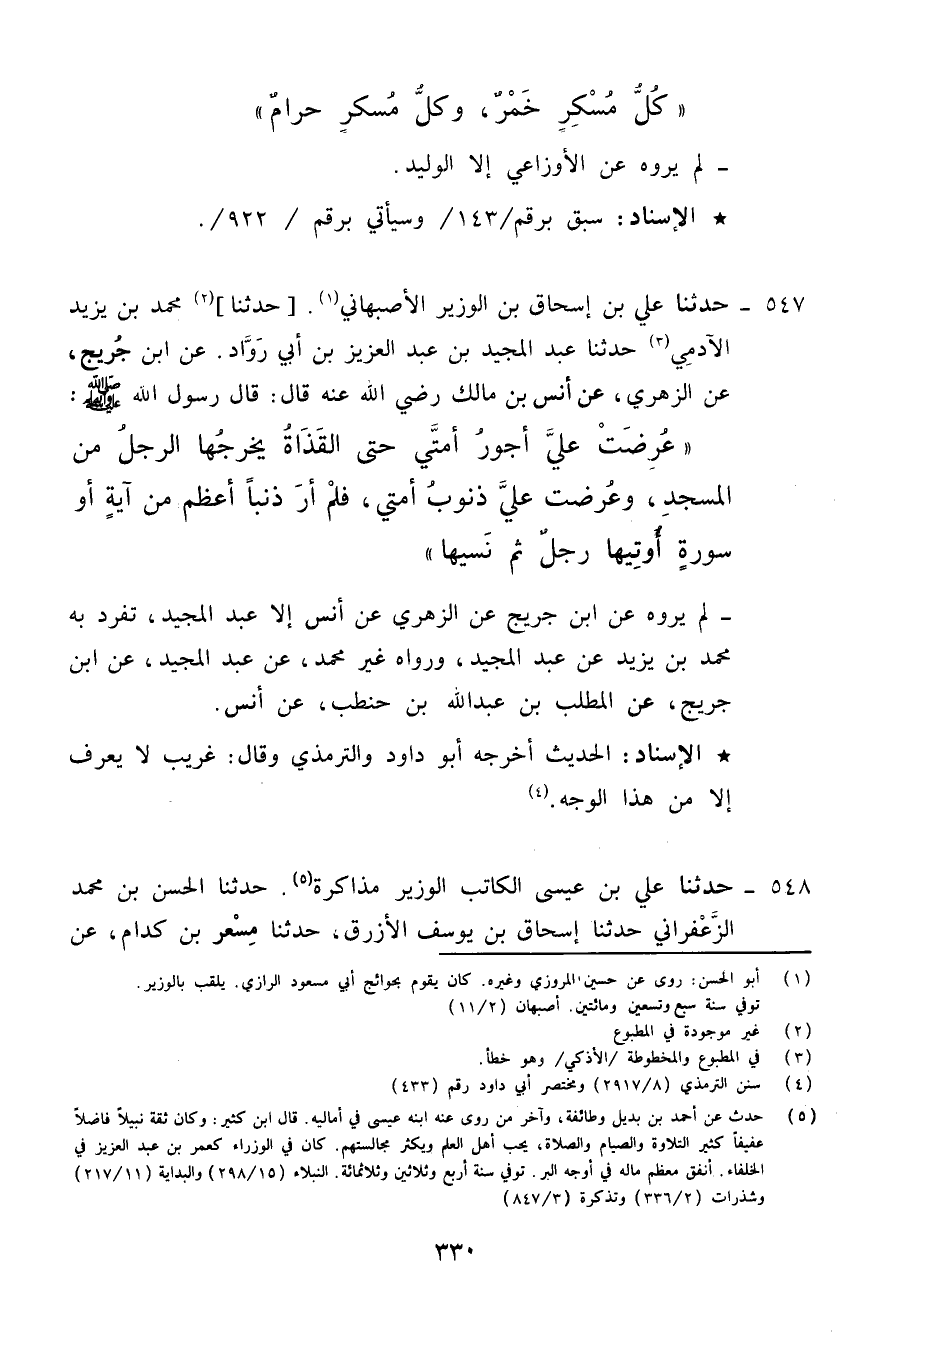 « كُلُّ مُسْكِرٍ خَمْرٌ، وكلُّ مُسكرٍ حرامٌ »
ـ لم يروه عن الأوزاعي إلا الوليد.
★ الإسناد: سبق برقم/١٤٣/ وسيأتي برقم / ٩٢٢/.
٥٤٧ ـ حدثنا علي بن إسحاق بن الوزير الأصبهاني(١). [ حدثنا ](٢) محمد بن يزيد
الآدمِي(٣) حدثنا عبد المجيد بن عبد العزيز بن أبي رَوَّاد. عن ابن جُريج،
عن الزهري، عن أنس بن مالك رضي الله عنه قال: قال رسول الله ﷺ :
« عُرِضَتْ عليَّ أجورُ أمتَّي حتى القَذَاةُ يخرجُها الرجلُ من
المسجدِ، وعُرضت عليَّ ذنوبُ أمتي، فلمْ أرَ ذنباً أعظم من آيةٍ أو
سورةٍ أُوتِيها رجلٌ ثم نَسيها »
ـ لم يروه عن ابن جريج عن الزهري عن أنس إلا عبد المجيد، تفرد به
محمد بن يزيد عن عبد المجيد، ورواه غير محمد، عن عبد المجيد، عن ابن
جريج، عن المطلب بن عبدالله بن حنطب، عن أنس.
★ الإسناد: الحديث أخرجه أبو داود والترمذي وقال: غريب لا يعرف
إلا من هذا الوجه.(٤)
٥٤٨ ـ حدثنا علي بن عيسى الكاتب الوزير مذاكرة(٥). حدثنا الحسن بن محمد
الزَّعْفراني حدثنا إسحاق بن يوسف الأزرق، حدثنا مِسْعر بن كدام، عن
(١) أبو الحسن: روى عن حسين المروزي وغيره. كان يقوم بحوائج أبي مسعود الرازي. يلقب بالوزير.
توفي سنة سبع وتسعين ومائتين. أصبهان (١١/٢)
(٢) غير موجودة في المطبوع
(٣) في المطبوع والمخطوطة /الأذكي/ وهو خطأ.
(٤) سنن الترمذي (٢٩١٧/٨) ومختصر أبي داود رقم (٤٣٣)
(٥) حدث عن أحمد بن بديل وطائفة، وآخر من روى عنه ابنه عيسى في أماليه. قال ابن كثير: وكان ثقة نبيلاً فاضلاً
عفيفاً كثير التلاوة والصيام والصلاة، يحب أهل العلم ويكثر مجالستهم. كان في الوزراء كعمر بن عبد العزيز في
الخلفاء. أنفق معظم ماله في أوجه البر. توفي سنة أربع وثلاثين وثلاثمائة. النبلاء (٢٩٨/١٥) والبداية (٢١٧/١١)
وشذرات (٣٣٦/٢) وتذكرة (٨٤٧/٣)
٣٣٠